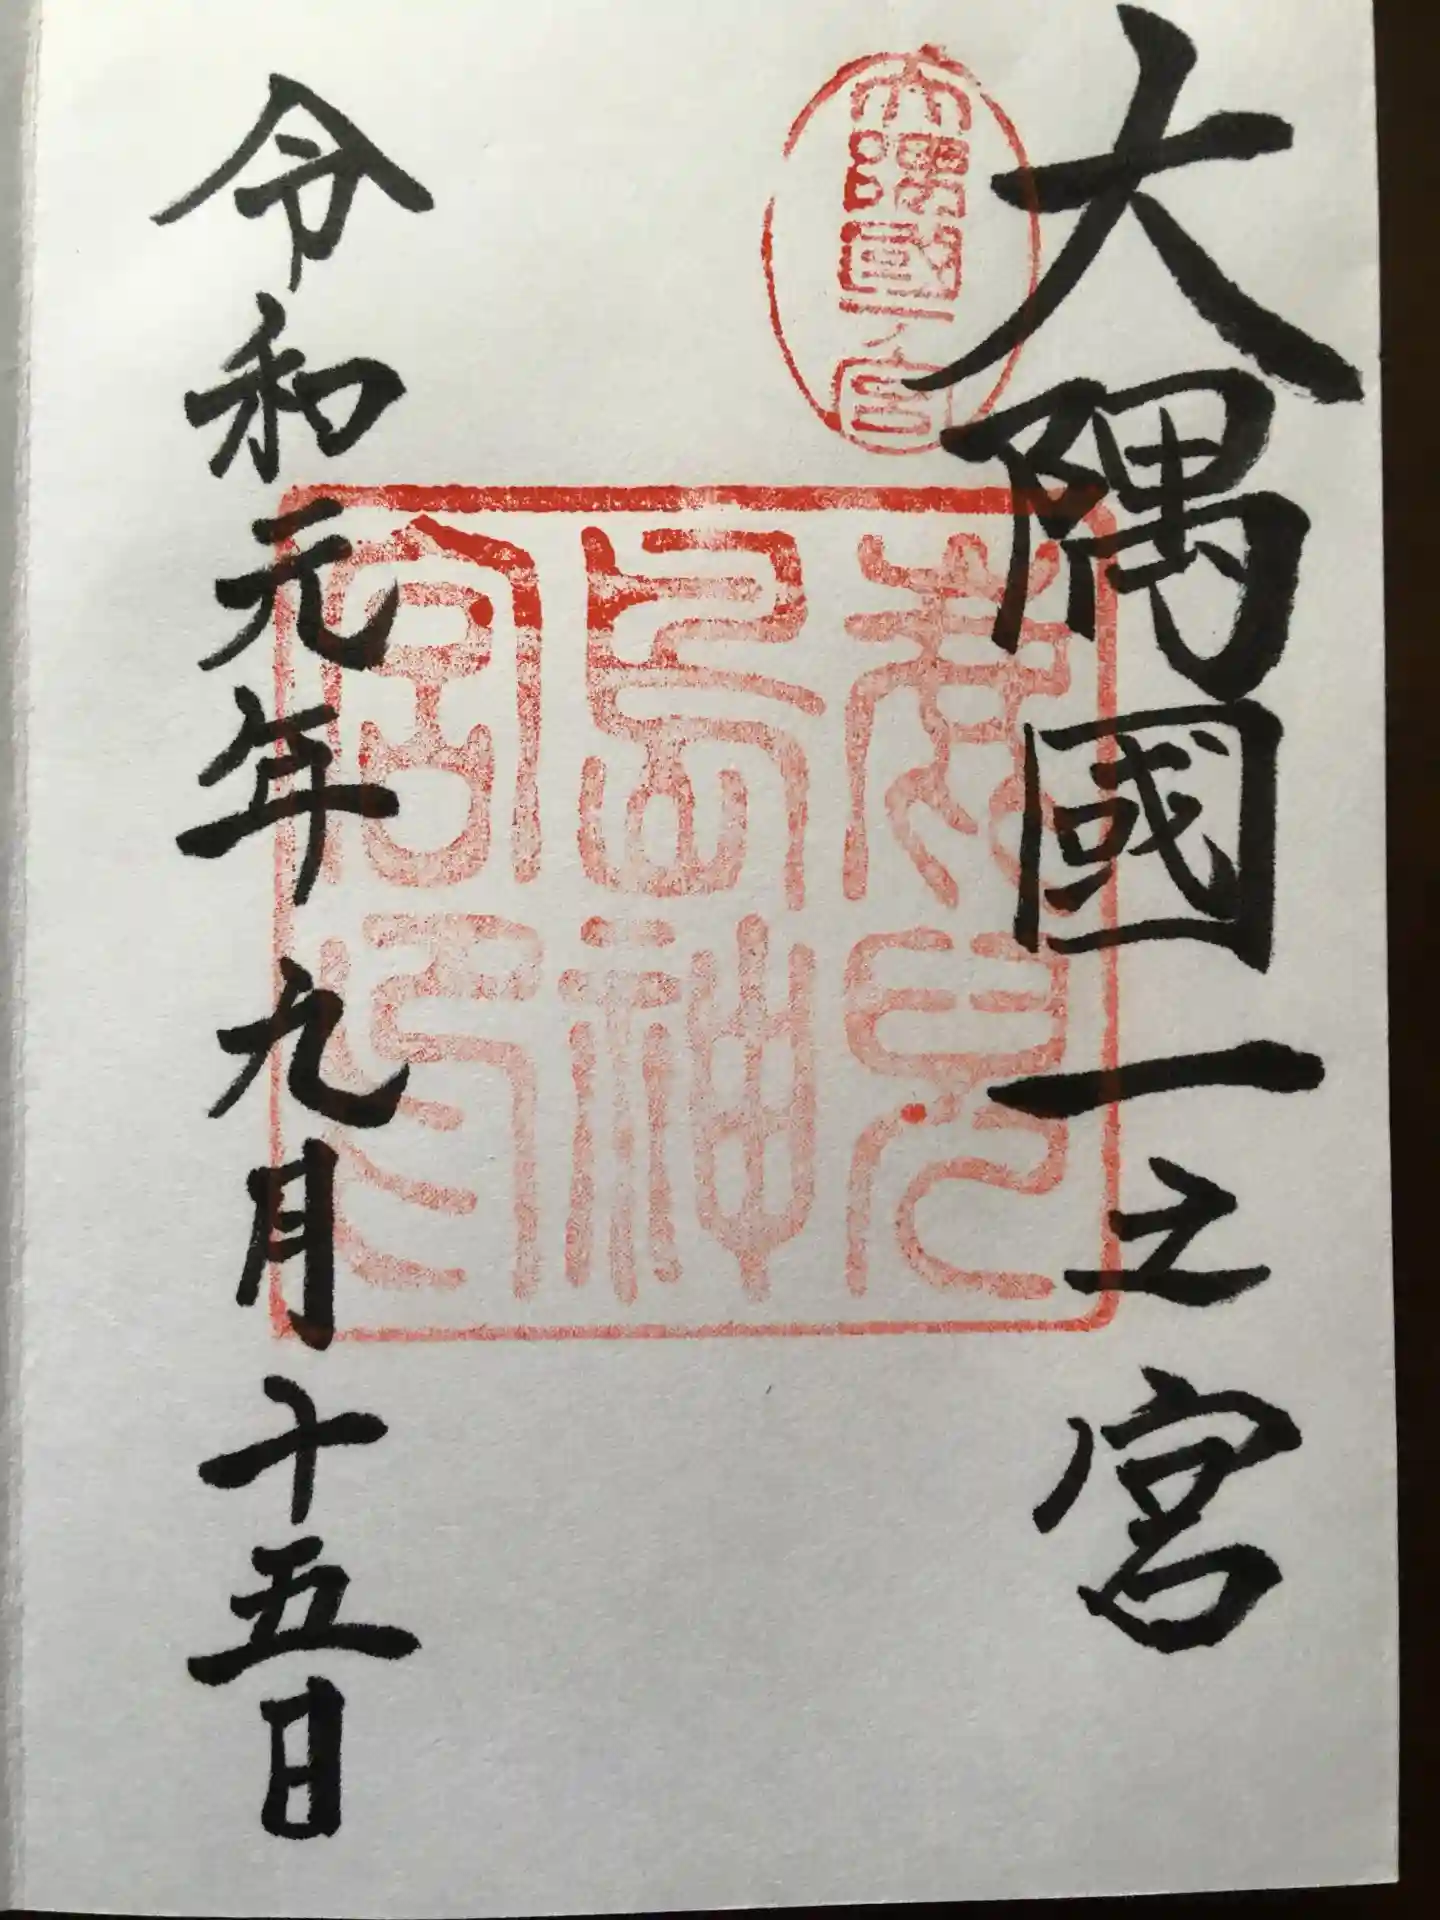 大隅國一之宮
大隅國一ノ宮
鹿兒島神宮印
令和元年九月十五日